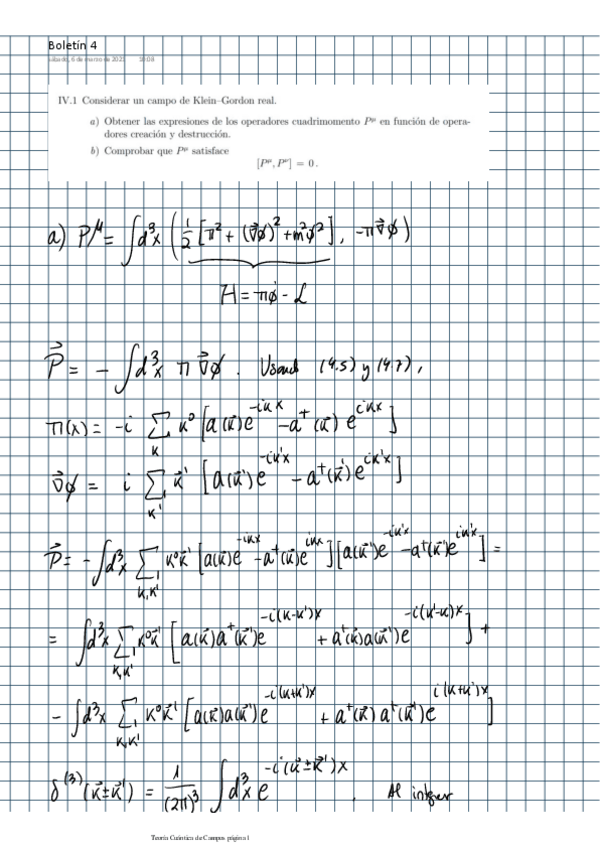 Boletín 4
sábado, 6 de marzo de 2021 10:03
IV.1 Considerar un campo de Klein–Gordon real.
a) Obtener las expresiones de los operadores cuadrimomento P^μ en función de opera-
dores creación y destrucción.
b) Comprobar que P^μ satisface
[P^μ, P^ν] = 0 .
a) P^μ = ∫d³x (½ [π² + (∇⃗φ)² + m²φ²], -π∇⃗φ)
H = πφ̇ - L
P⃗ = - ∫d³x π ∇⃗φ . Usando (4.5) y (4.7),
π(x) = -i ∑_k k⁰ [a(k⃗)e^{-ikx} - a⁺(k⃗) e^{ikx}]
∇⃗φ = i ∑_k' k⃗' [a(k⃗')e^{-ik'x} - a⁺(k⃗')e^{ik'x}]
P⃗ = -∫d³x ∑_{k,k'} k⁰k⃗' [a(k⃗)e^{-ikx} - a⁺(k⃗)e^{ikx}][a(k⃗')e^{-ik'x} - a⁺(k⃗')e^{ik'x}] =
= ∫d³x ∑_{k,k'} k⁰k⃗' [a(k⃗)a⁺(k⃗')e^{-i(k-k')x} + a⁺(k⃗)a(k⃗')e^{-i(k'-k)x}] +
- ∫d³x ∑_{k,k'} k⁰k⃗' [a(k⃗)a(k⃗')e^{-i(k+k')x} + a⁺(k⃗)a⁺(k⃗')e^{i(k+k')x}]
δ^{(3)}(k⃗±k⃗') = 1/(2π)³ ∫d³x e^{-i(k⃗±k⃗')x} . Al integrar
Teoría Cuántica de Campos página 1